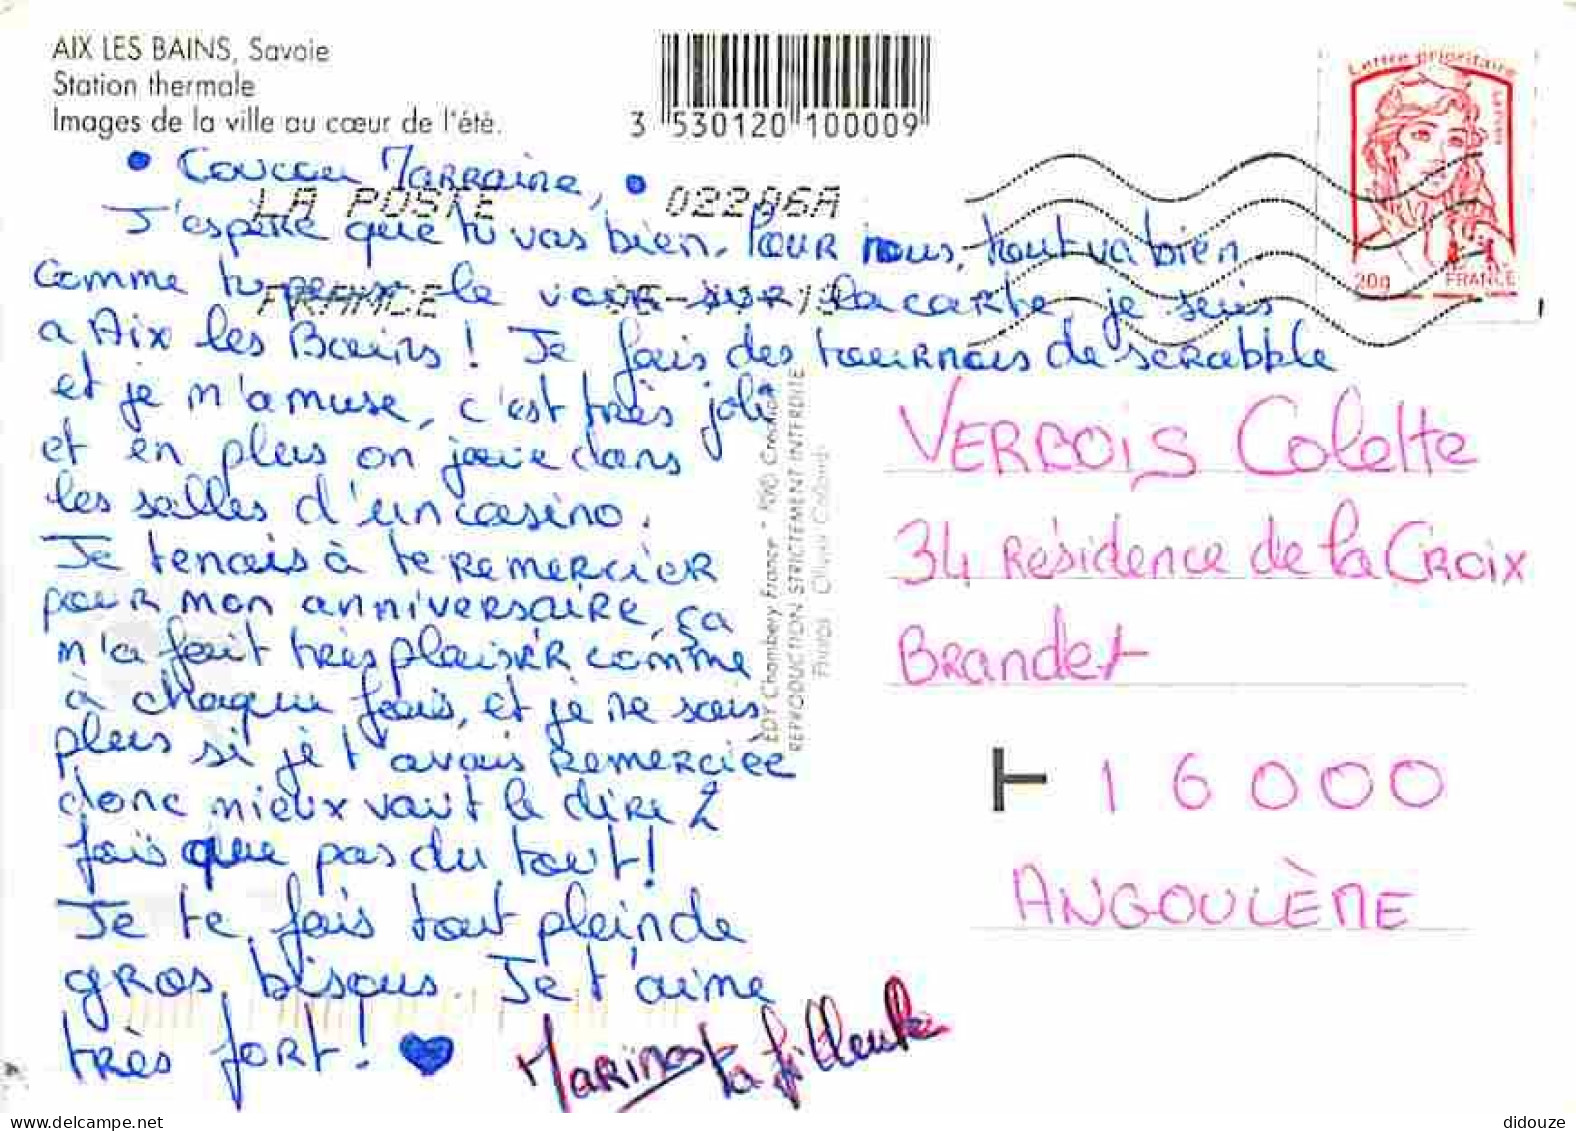 AIX LES BAINS, Savoie
Station thermale
Images de la ville au cœur de l'été.
3 530120 100009
Lettre prioritaire
20g
FRANCE
LA POSTE
02286A
FRANCE
• Coucou Marraine, •
J'espère que tu vas bien. Pour nous, tout va bien.
Comme tu peux le voir sur la carte, je suis
a Aix les Bains ! Je fais des tournois de scrabble
et je m'amuse, c'est très joli
et en plus on joue dans
les salles d'un casino.
Je tenais à te remercier
pour mon anniversaire, ça
m'a fait très plaisir comme
à chaque fois, et je ne sais
plus si je t'avais remerciée
donc mieux vaut le dire 2
fois que pas du tout !
Je te fais tout plein de
gros bisous. Je t'aime
très fort ! ♥
Marina ta filleule
EDY Chambéry France -
REPRODUCTION STRICTEMENT INTERDITE
VERBOIS Colette
34 Résidence de la Croix
Brandet
16000
ANGOULÈME
didouze